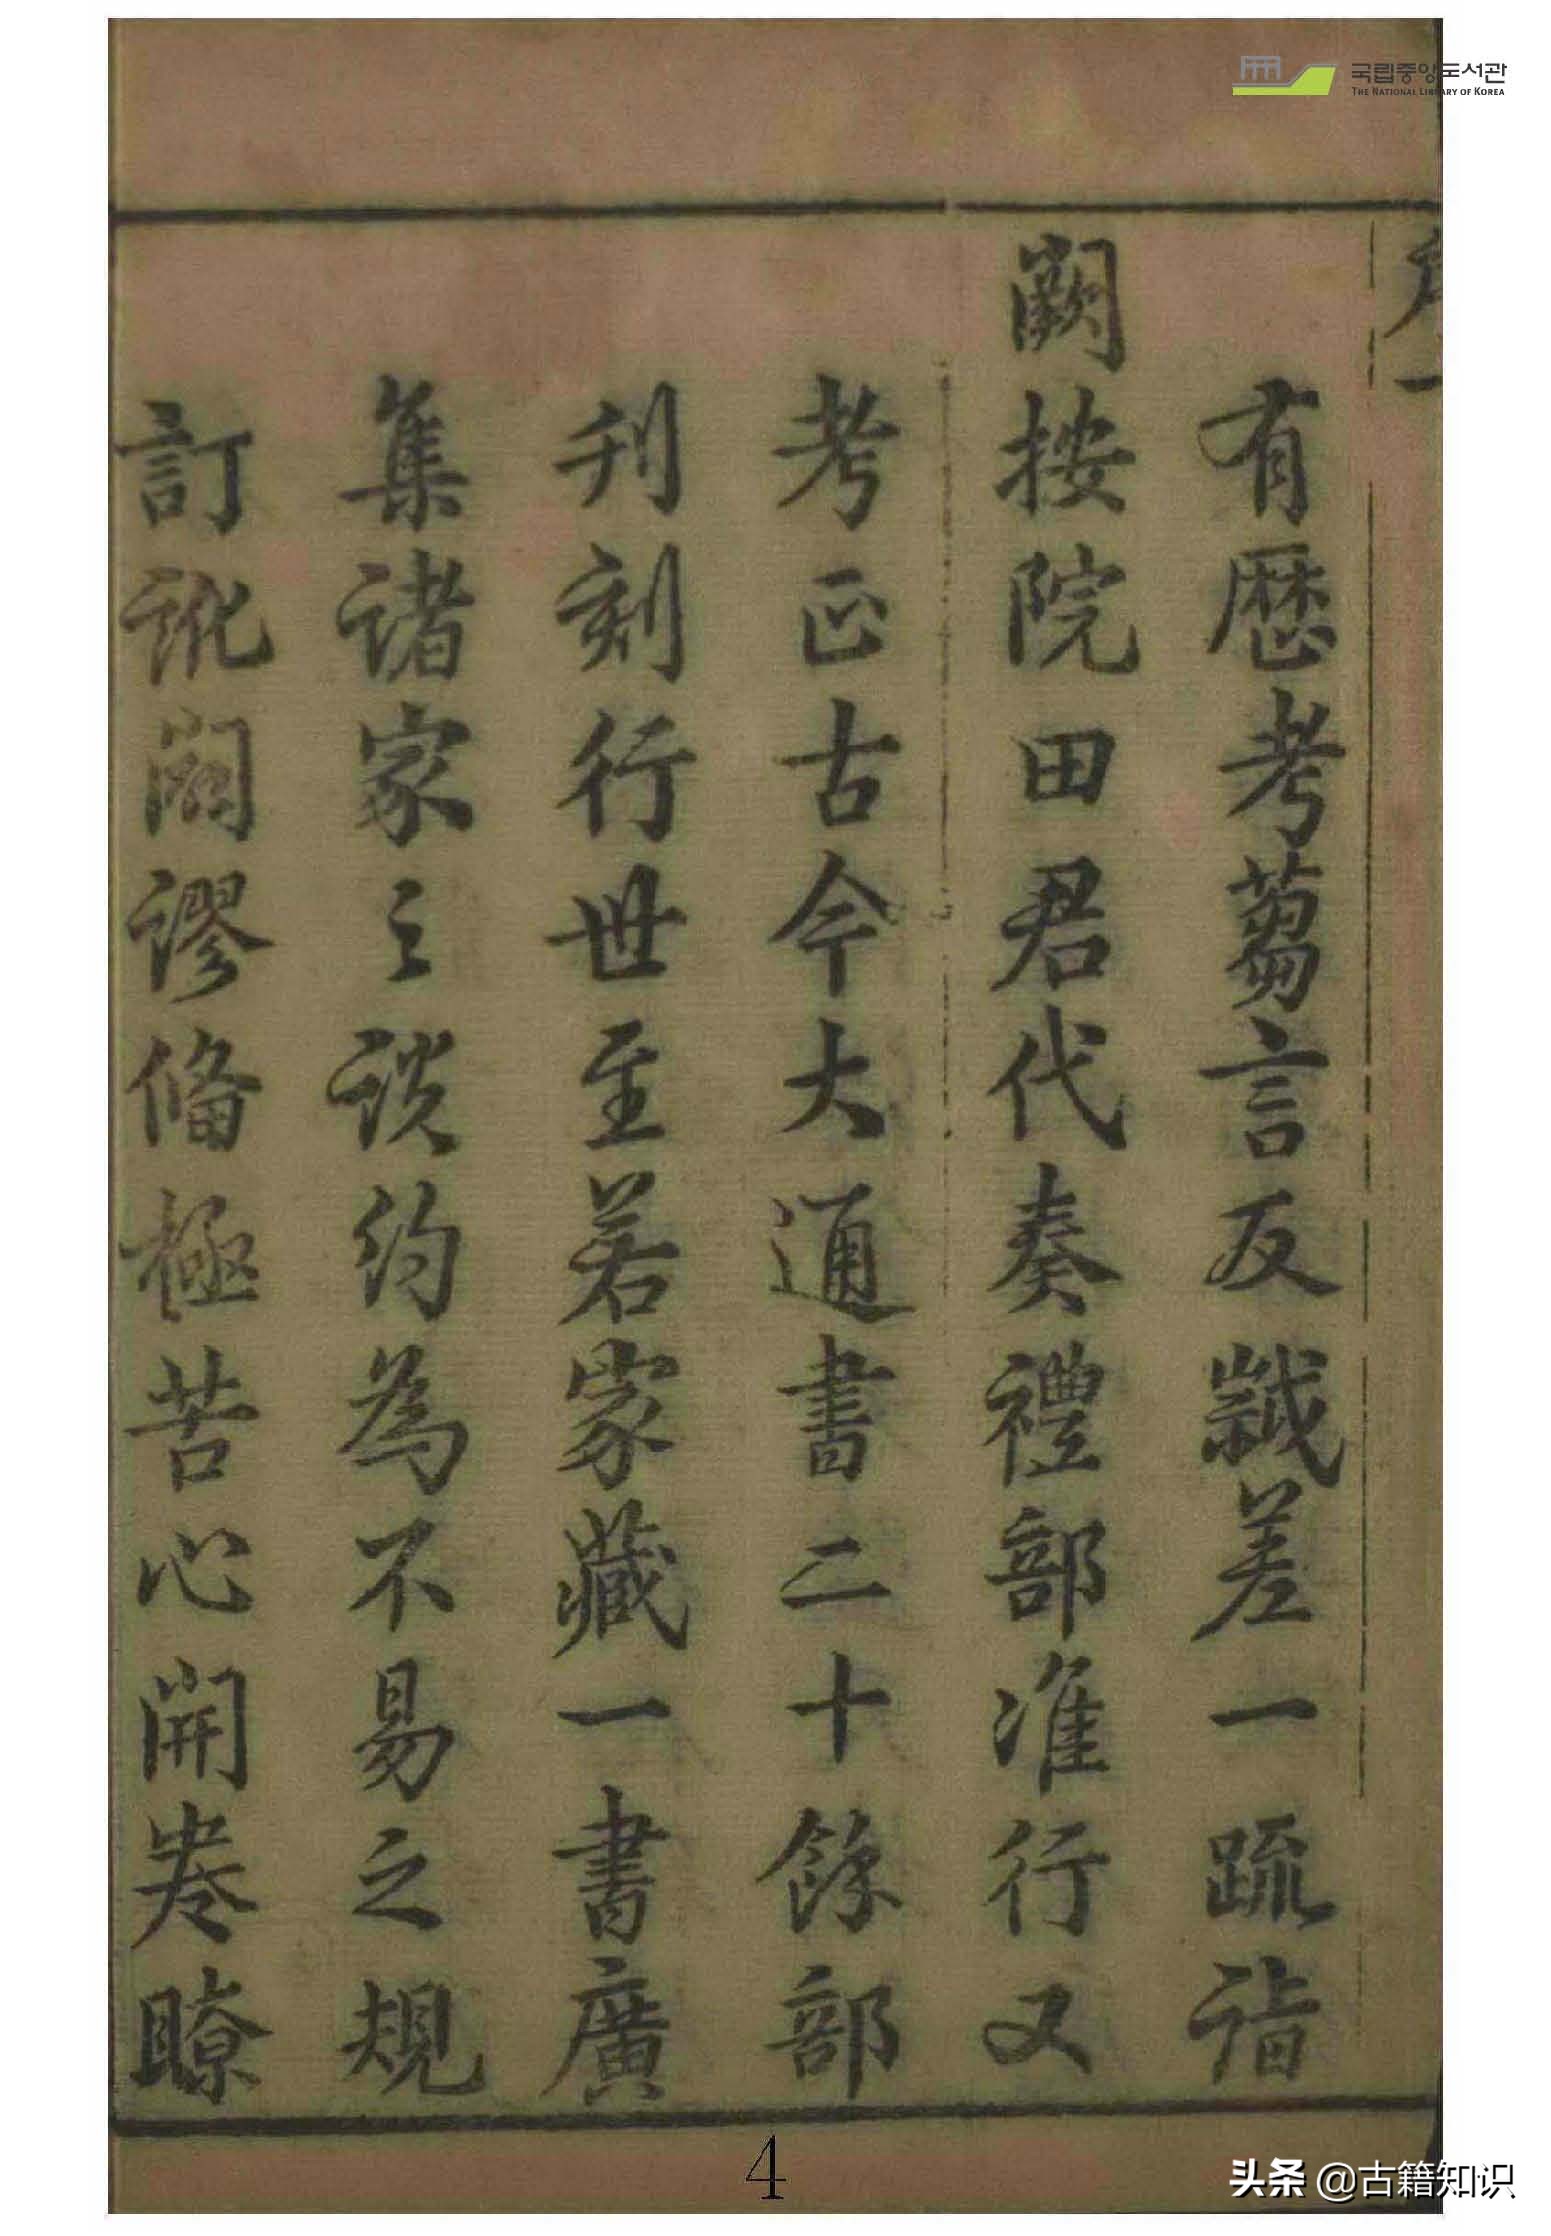 국립중앙도서관
THE NATIONAL LIBRARY OF KOREA
序一
有歷考蒭言反
差一疏詣
闕按院田君代奏禮部准行又
考正古今大通書二十餘部
刊刻行世至若家藏一書廣
集諸家之談約為不易之規
訂訛闢謬備極苦心開卷瞭
4
头条 @古籍知识